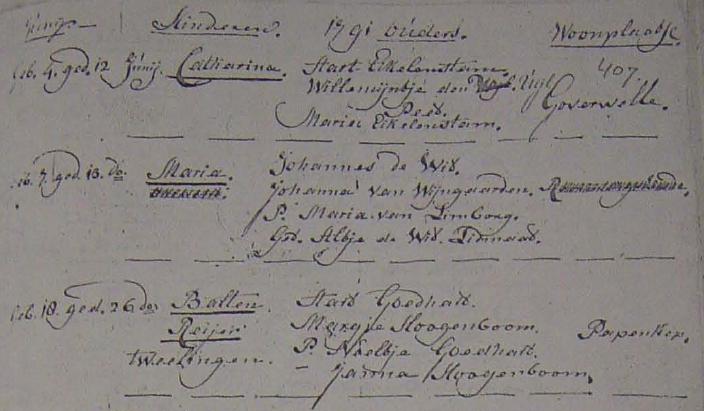 Junij Kinderen. 1791 ouders. Woonplaatse.
geb. 4. ged. 12 Junij. Catharina. Start Eikelenstam. 407.
Willemijntje den Uijl. Goverwelle.
Peet.
Maria Eikelenstam.
geb. 7. ged. 13. do. Maria. Johannes de Wit.
Johanna van Wijngaarden.
P. Maria van Limborg.
Get. Albje de Wit.
geb. 18. ged. 26 do. Balten Start Goedhart.
Reijer Margje Hoogenboom. Papenkop.
tweelingen. P. Neeltje Goedhart.
Janna Hoogenboom.